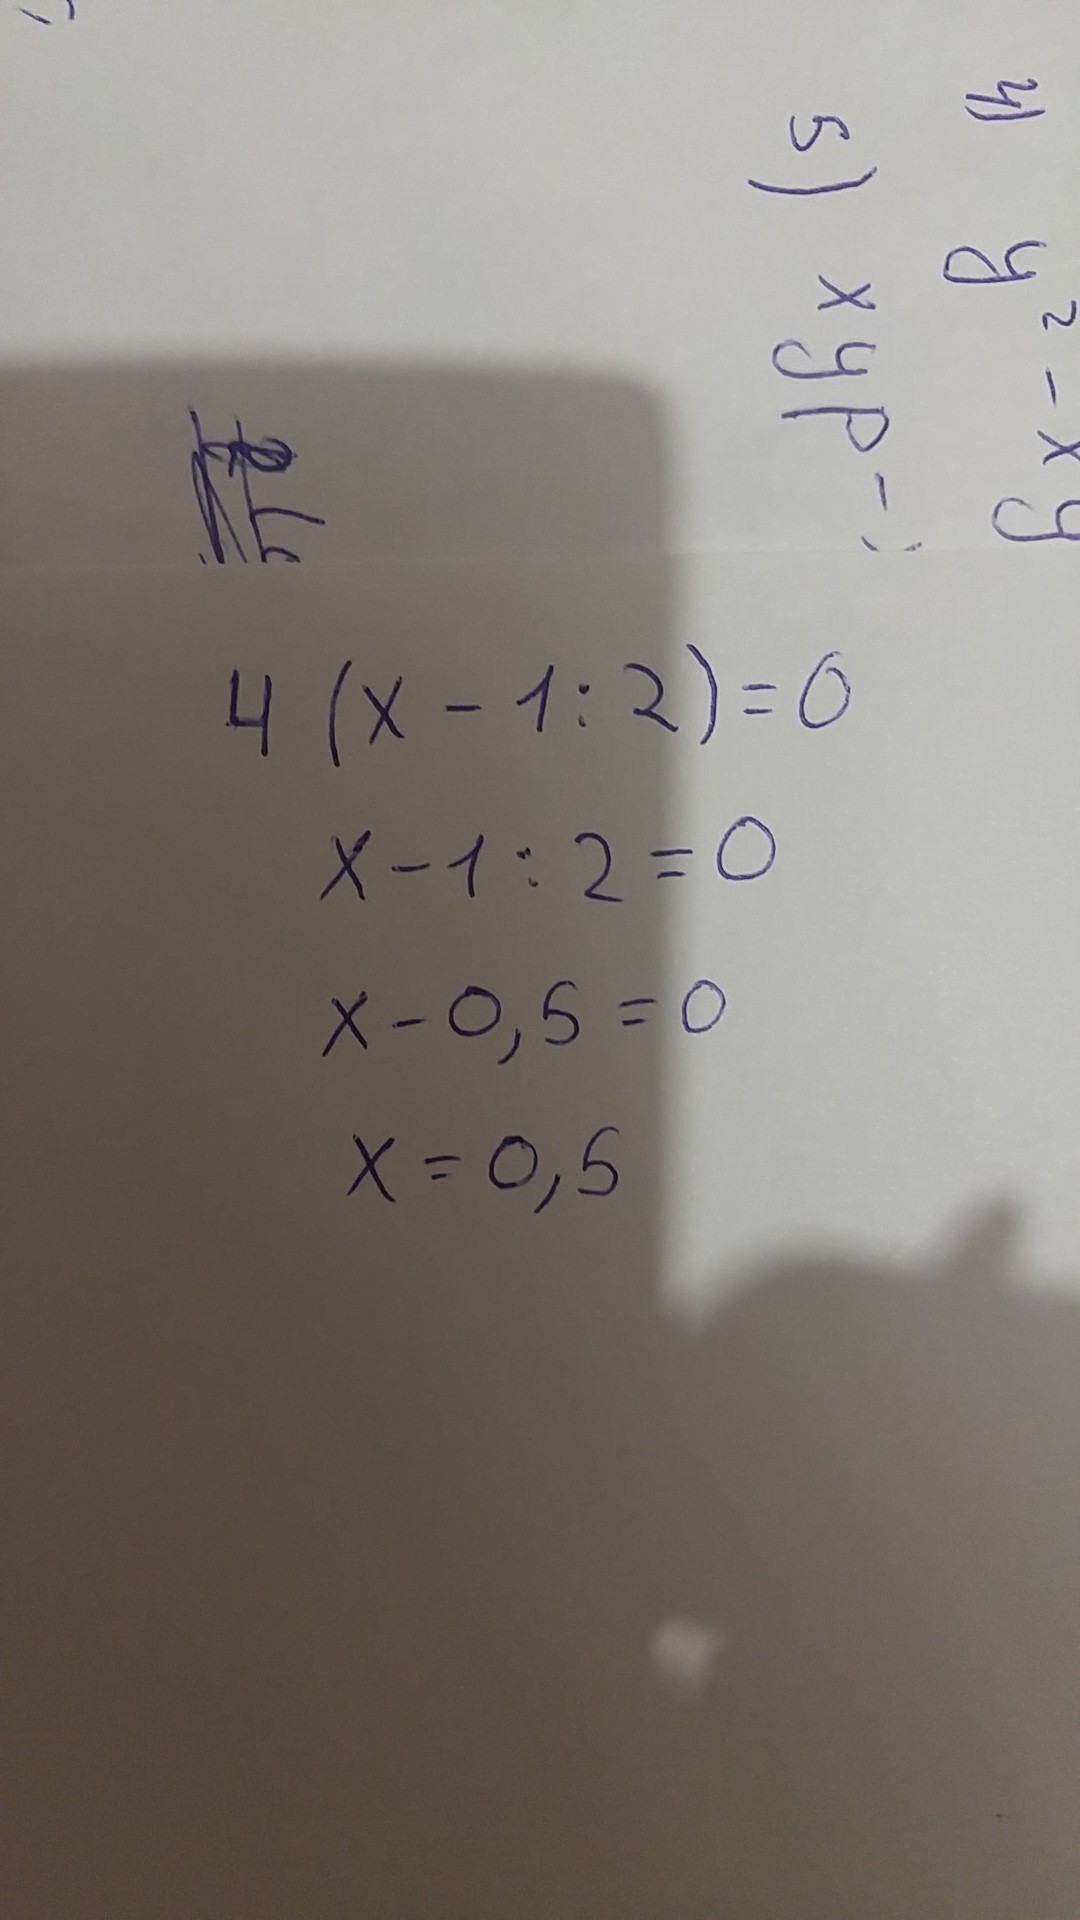 4 (x - 1 : 2) = 0
x - 1 : 2 = 0
x - 0,5 = 0
x = 0,5
4) y² - xy
5) xyp -